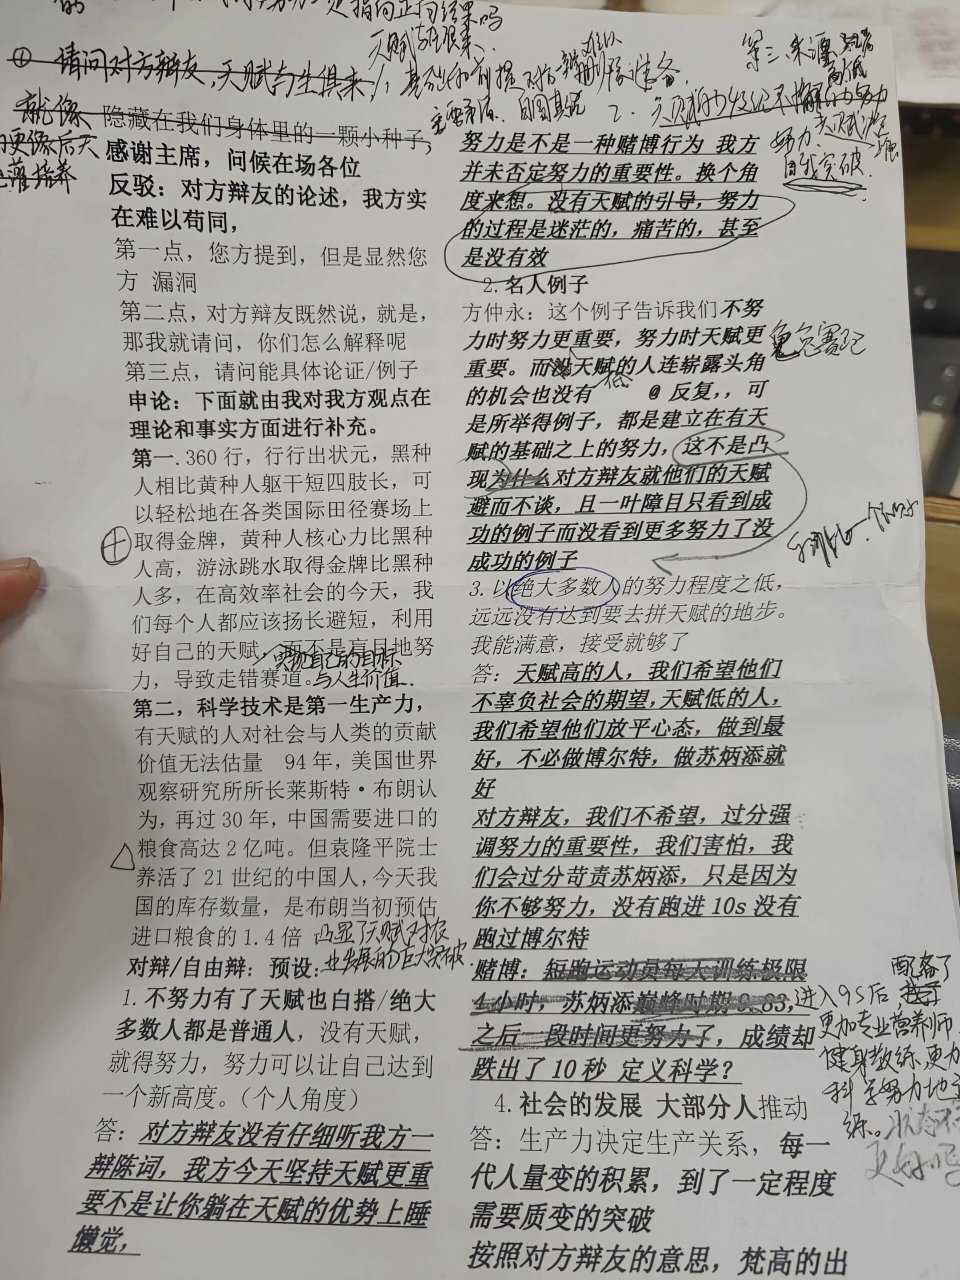 的
努力一定指向正向结果吗
天赋与生俱来、
① 请问对方辩友,天赋与生俱来
就像 隐藏在我们身体里的一颗小种子,
更像后天
培养
基础和前提
准备
自圆其说
第三、来源
高低
努力
努力.
自我突破.
感谢主席，问候在场各位
反驳：对方辩友的论述，我方实
在难以苟同，
第一点，您方提到，但是显然您
方 漏洞
第二点，对方辩友既然说，就是，
那我就请问，你们怎么解释呢
第三点，请问能具体论证/例子
申论：下面就由我对我方观点在
理论和事实方面进行补充。
第一.360 行，行行出状元，黑种
人相比黄种人躯干短四肢长，可
以轻松地在各类国际田径赛场上
取得金牌，黄种人核心力比黑种
人高，游泳跳水取得金牌比黑种
人多，在高效率社会的今天，我
们每个人都应该扬长避短，利用
好自己的天赋，而不是盲目地努
实现自己的目标
力，导致走错赛道。与人生价值.
第二，科学技术是第一生产力，
有天赋的人对社会与人类的贡献
价值无法估量 94 年，美国世界
观察研究所所长莱斯特·布朗认
为，再过 30 年，中国需要进口的
粮食高达 2 亿吨。但袁隆平院士
养活了 21 世纪的中国人，今天我
国的库存数量，是布朗当初预估
进口粮食的 1.4 倍 凸显了天赋对农
对辩/自由辩：预设：业发展的巨大突破.
1.不努力有了天赋也白搭/绝大
多数人都是普通人，没有天赋，
就得努力，努力可以让自己达到
一个新高度。（个人角度）
答：对方辩友没有仔细听我方一
辩陈词，我方今天坚持天赋更重
要不是让你躺在天赋的优势上睡
懒觉，
努力是不是一种赌博行为 我方
并未否定努力的重要性。换个角
度来想。没有天赋的引导，努力
的过程是迷茫的，痛苦的，甚至
是没有效
2.名人例子
方仲永：这个例子告诉我们不努
力时努力更重要，努力时天赋更
龟兔赛跑
重要。而没天赋的人连崭露头角
低
的机会也没有 @ 反复,，可
是所举得例子，都是建立在有天
赋的基础之上的努力，这不是凸
现为什么对方辩友就他们的天赋
避而不谈，且一叶障目只看到成
功的例子而没看到更多努力了没
成功的例子
3.以绝大多数人的努力程度之低，
远远没有达到要去拼天赋的地步。
我能满意，接受就够了
答：天赋高的人，我们希望他们
不辜负社会的期望，天赋低的人，
我们希望他们放平心态，做到最
好，不必做博尔特，做苏炳添就
好
对方辩友，我们不希望，过分强
调努力的重要性，我们害怕，我
们会过分苛责苏炳添，只是因为
你不够努力，没有跑进 10s 没有
跑过博尔特
赌博：短跑运动员每天训练极限
4 小时，苏炳添巅峰时期 9.83，进入9S后
之后一段时间更努力了，成绩却
跌出了 10 秒 定义科学？
配备了
更加专业营养师
健身教练.更加
科学努力地
练。状态不
更好吗
4.社会的发展 大部分人推动
答：生产力决定生产关系，每一
代人量变的积累，到了一定程度
需要质变的突破
按照对方辩友的意思，梵高的出